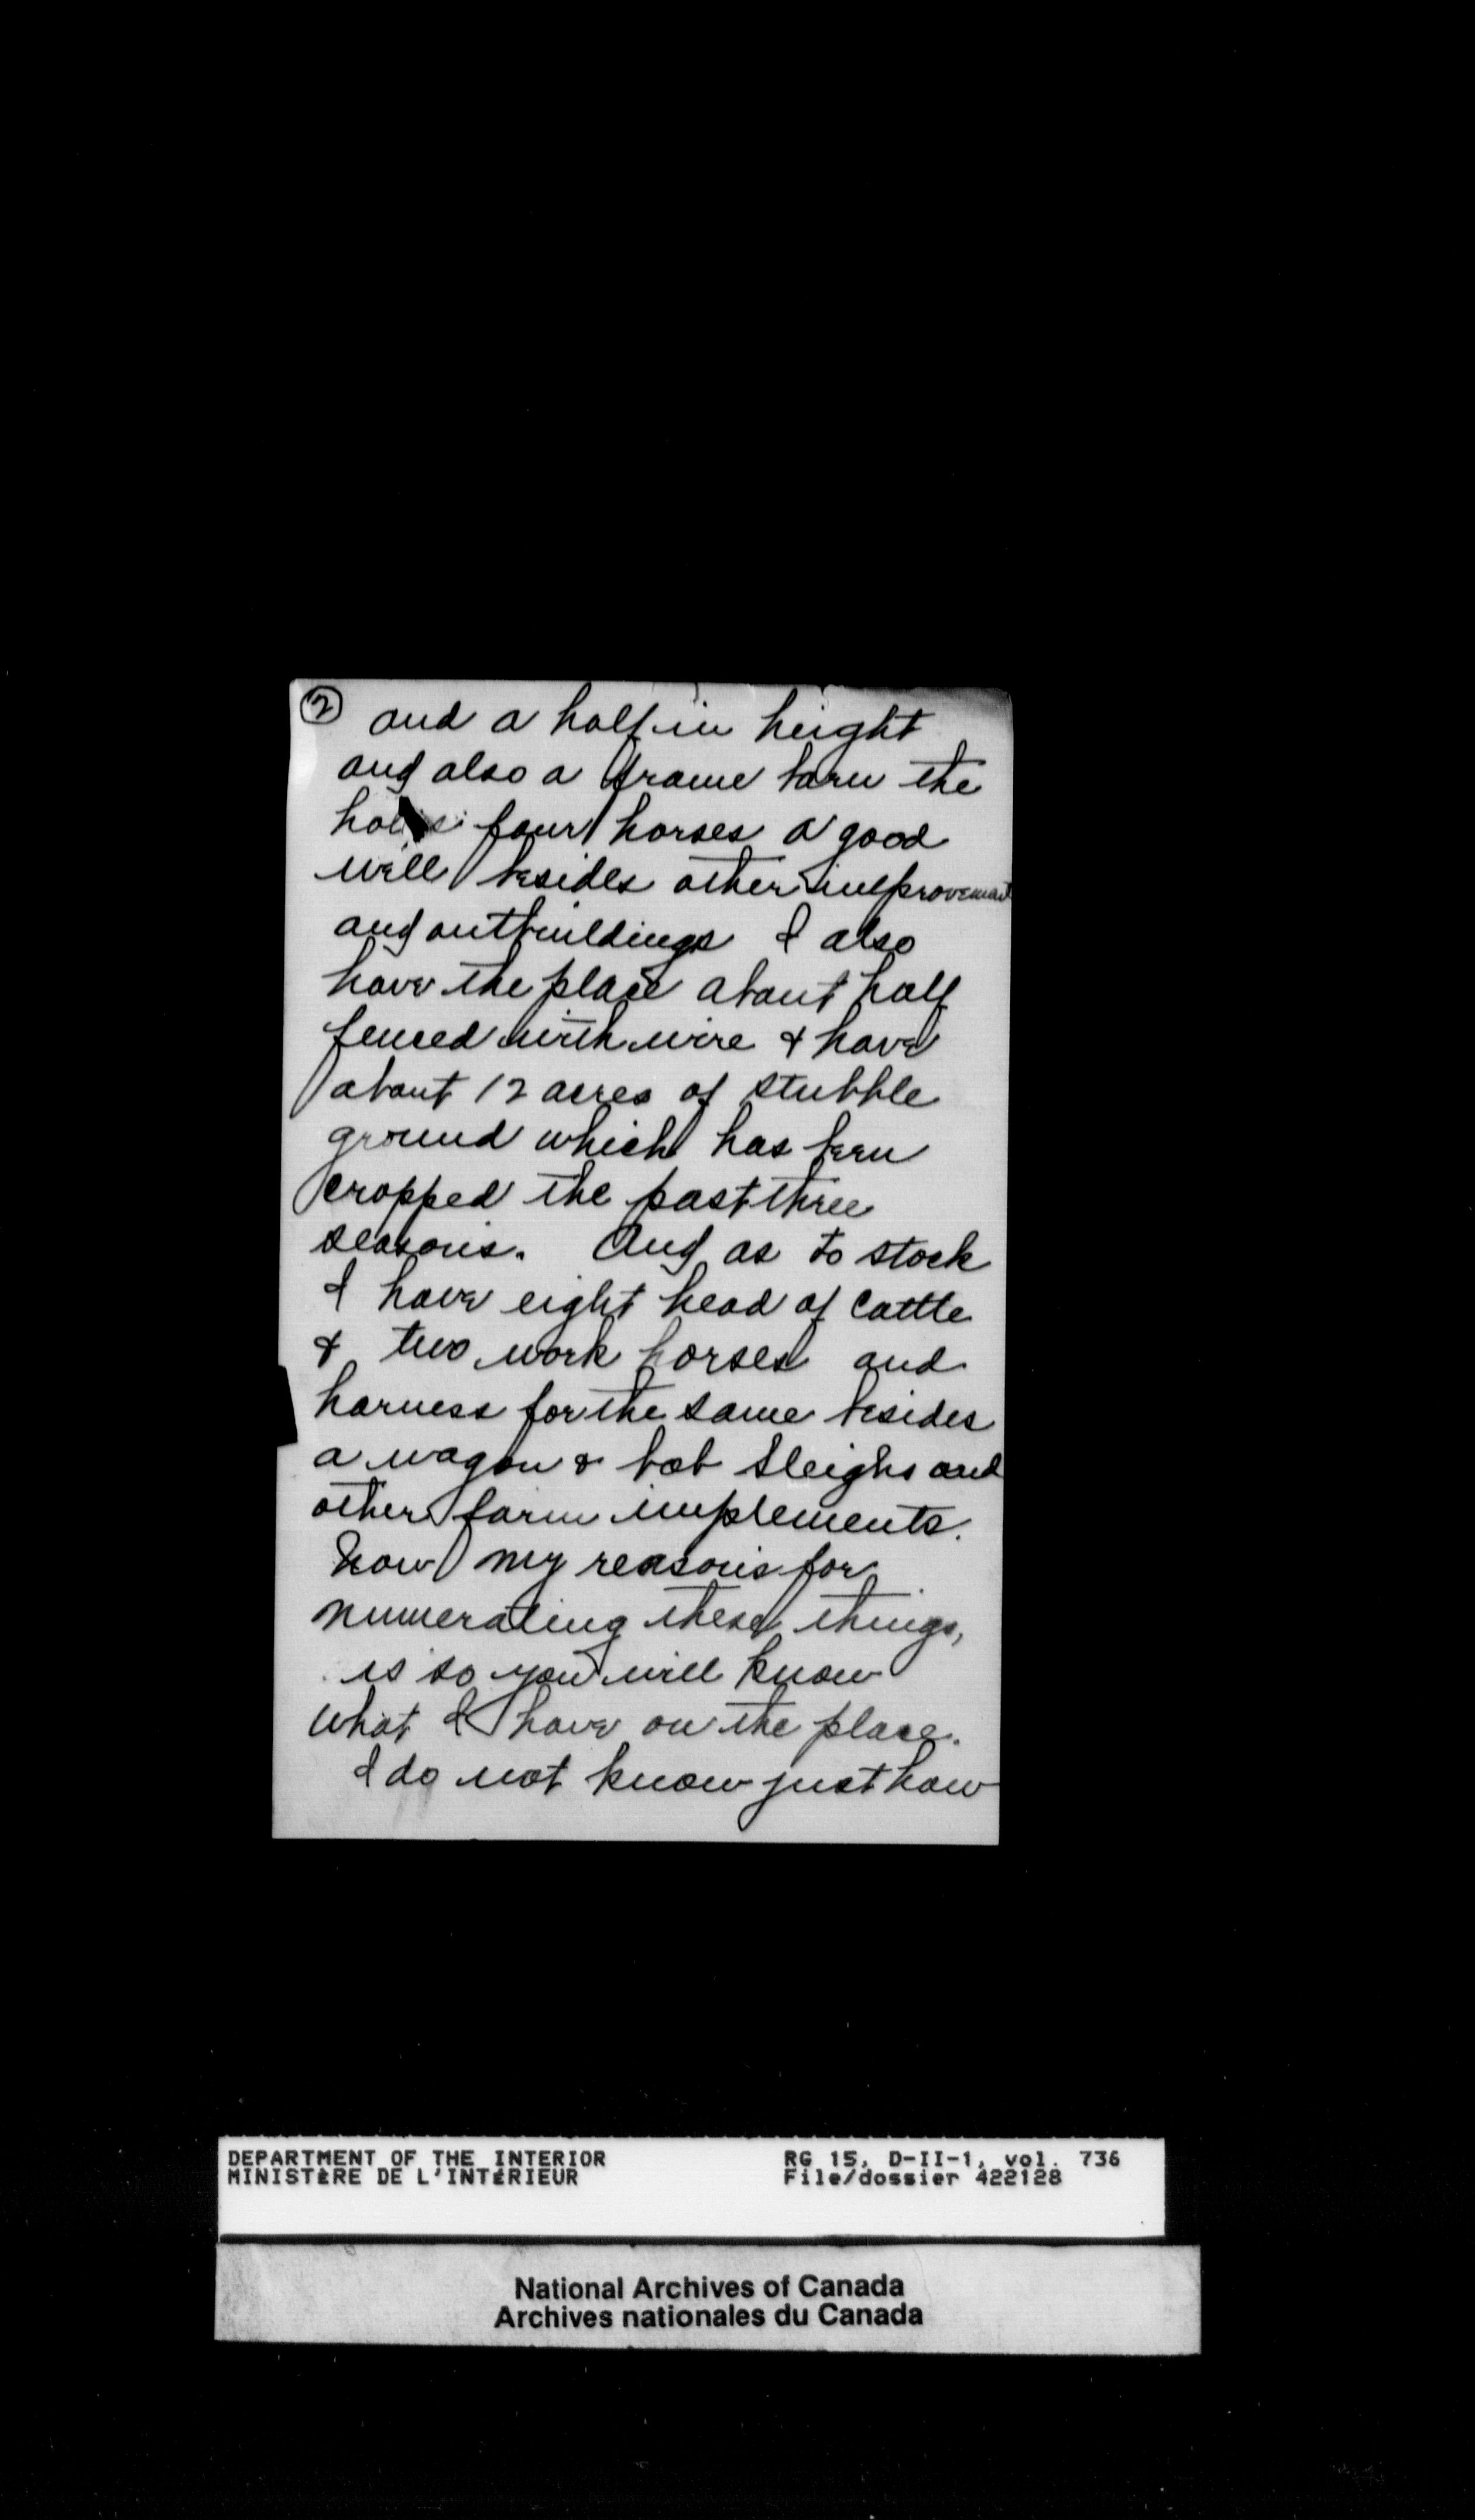 ② and a half in height
and also a frame barn the
holds four horses a good
well besides other improvement
and outbuildings I also
have the place about half
fenced with wire & have
about 12 acres of stubble
ground which has been
cropped the past three
seasons. And as to stock
I have eight head of cattle
& two work horses and
harness for the same besides
a wagon & bob sleighs and
other farm implements.
Now my reasons for
numerating these things,
is so you will know
what I have on the place.
I do not know just how
DEPARTMENT OF THE INTERIOR RG 15, D-II-1, vol. 736
MINISTÈRE DE L'INTÉRIEUR File/dossier 422128
National Archives of Canada
Archives nationales du Canada